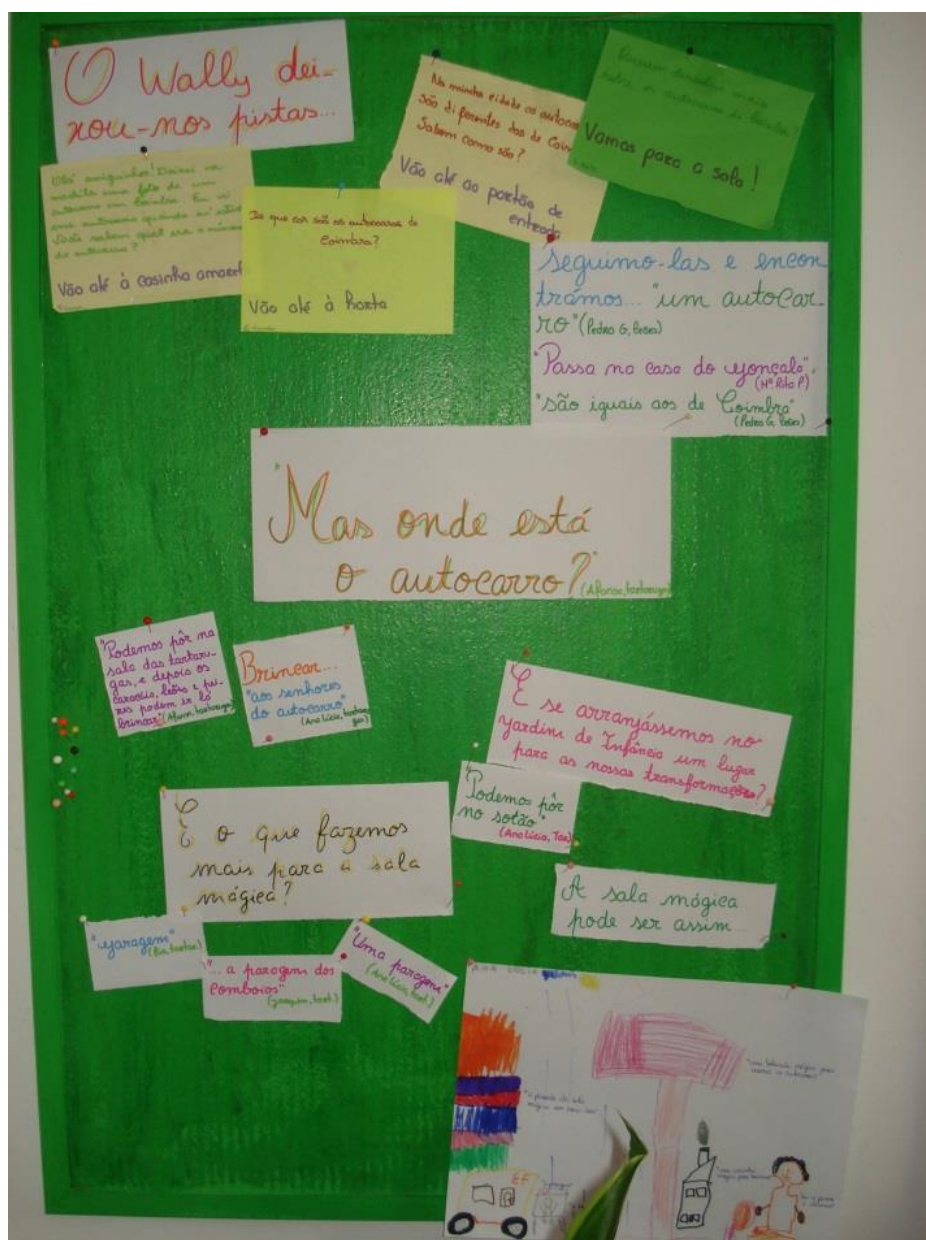 O Wally dei-
xou-nos pistas...
Olá amiguinhos! Deixei na
mochila uma foto de um
autocarro em Coimbra. Eu vi
esse autocarro quando aí
do autocarro?
Vão até à casinha amarel
De que cor são os autocarros de
Coimbra?
Vão até à horta
Na minha cidade os autocar
são diferentes dos de Coim
Sabem como são?
Vão até ao portão de
entrada
Vamos para a sala!
Seguimo-las e encon
trámos... "um autocar-
ro" (Pedro G, Peixes)
"Passa na casa do Gonçalo".
(Mª Rita P)
"são iguais aos de Coimbra"
(Pedro G. Peixes)
"Mas onde está
o autocarro?" (Afonso, tartaruga)
"Podemos pôr na
sala das tartaru-
gas, e depois os
caracóis, leões e pei-
xes podem ir lá
brincar" (Afonso, tartaruga)
Brincar...
"aos senhores
do autocarro"
(Ana Lúcia, tartaru-
gas)
E se arranjássemos no
Jardim de Infância um lugar
para as nossas transformações?
"Podemos pôr
no sotão"
(Ana Lúcia, Tar.)
E o que fazemos
mais para a sala
mágica?
A sala mágica
pode ser assim...
"Garagem"
(Bia, tartar.)
"... a paragem dos
Comboios"
(Joaquim, tart.)
"Uma paragem"
(Ana Lúcia, tart.)
ANA LÚCIA
EF